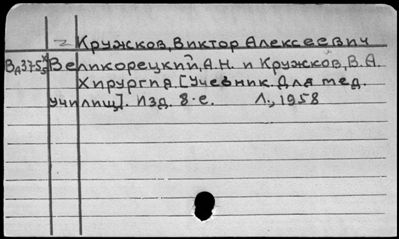 2 Кружков, Виктор Алексеевич
Великорецкий, А.Н. и Кружков, В.А.
Хирургия [Учебник для мед.
училищ]. Изд. 8-е. Л., 1958